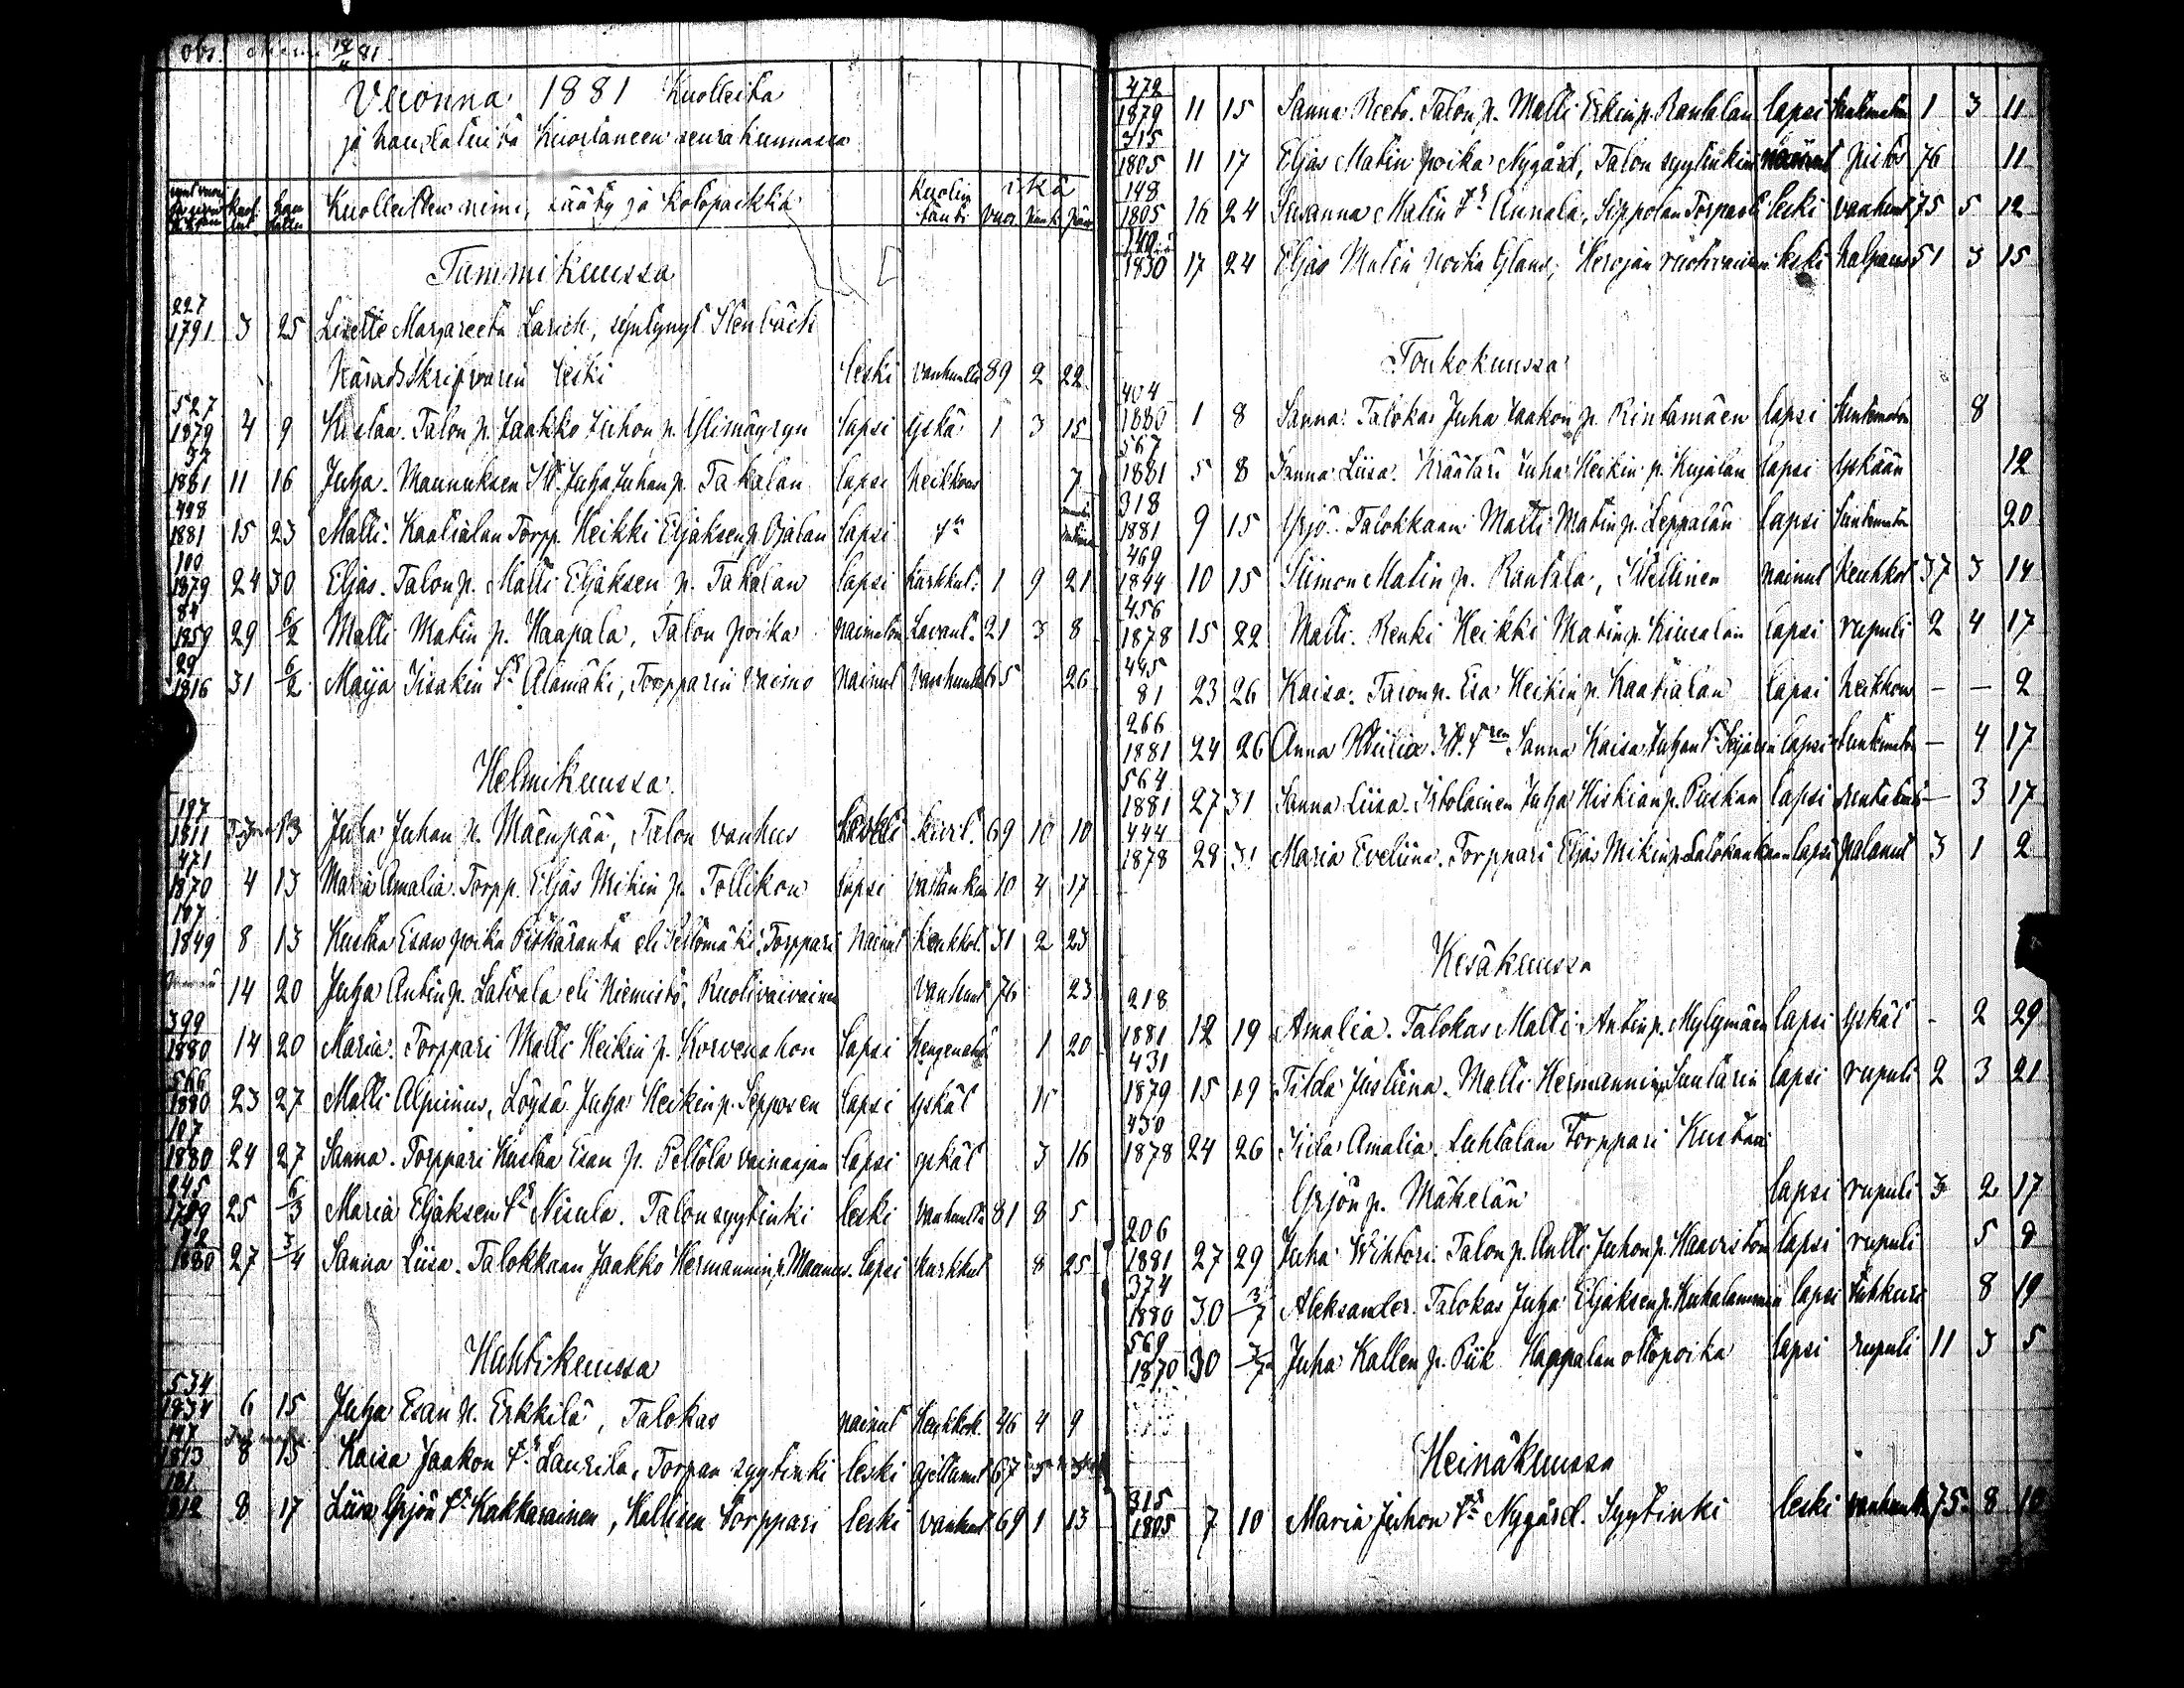 18/4 81
Vuonna 1881 Kuolleita
ja haudatuita Kuortaneen seurakunnassa
Kuolleitten nimi, sääty ja kotopaikka Kuolin tauti ikä vuo. kuuk. päiv.
Tammikuussa
227
1791 3 25 Lisette Margareeta Larich, syntynyt Stenbäck
Häradsskrifvarin leski leski vanhuutta 89 2 22
527
1879 4 9 Kustaa. Talon p. Jaakko Juhon p. Ylimäyryn lapsi yskä 1 3 15
37
1881 11 16 Juha. Maunuksen Juha Juhan p. Takalan lapsi heikkous 7
498
1881 15 23 Matti. Kaatialan Torpp. Heikki Eljaksen p. Ojalan lapsi
100
1879 24 30 Eljas. Talon p. Matti Eljaksen p. Takalan lapsi kurkkut. 1 9 21
84
1859 29 6/2 Matti Matin p. Haapala, Talon poika naimaton Lavant. 21 3 8
29
1816 31 6/2 Maija Iisakin tr Alamäki, Torpparin vaimo nainut vanhuutta 65 26
Helmikuussa
197
1811 13 Juha Juhan p. Mäenpää, Talon vanhus leski 69 10 10
471
1870 4 13 Maria Amalia. Torpp. Eljas Mikin p. Tollikon lapsi 10 4 17
187
1849 8 13 Kustaa Esan poika Pitkäranta eli Torppari nainut keuhkot. 31 2 23
14 20 Juha Antin p. Latvala eli Niemistö, Ruotivaivainen vanhuut 76 23
399
1880 14 20 Maria. Torppari Matti Heikin p. Korvenahon lapsi hengenahd 1 20
566
1880 23 27 Matti Alpiinus, Löysä Juha Heikin p. Sepposen lapsi yskät 11
107
1880 24 27 Sanna. Torppari Kustaa Esan p. Peltola vainaajan lapsi yskät 3 16
245
1799 25 6/3 Maria Eljaksen tr Nisula. Talon syytinki leski vanhuutta 81 8 5
1880 27 3/4 Sanna Liisa. Talokkaan Jaakko Hermannin p. Maunus. lapsi kurkkut 8 25
Huhtikuussa
534
1834 6 15 Juha Esan p. Erkkilä, Talokas nainut keuhkok. 46 4 9
147
1813 8 15 Kaisa Jaakon tr Laurila, Torpan syytinki leski ajettumat 67 3
181
1812 8 17 Liisa Yrjön tr Kakkarainen, Torppari leski vanhuut 69 1 13
472
1879 11 15 Sanna Reeta. Talon p. Matti Erkin p. Rantalan lapsi tuntematon 1 3 11
315
1805 11 17 Eljas Matin poika Nygård, Talon syytinkim. nainut pistos 76 11
148
1805 16 24 Susanna Matin tr Annala, Sippolan Torpasta leski vanhuut 75 5 12
140
1830 17 24 Eljas Matin poika Glans, Herojan ruotivaivainen leski halpaus 51 3 15
Toukokuussa
404
1880 1 8 Sanna. Talokas Juha Jaakon p. Rintamäen lapsi tuntematon 8
567
1881 5 8 Sanna Liisa. Kräätäri Juha Heikin p. Kujalan lapsi yskään 12
318
1881 9 15 Yrjö. Talokkaan Matti Matin p. Leppälän lapsi tuntematon 20
469
1844 10 15 Siimon Matin p. Rantala, Itsellinen nainut keuhkot 37 3 14
456
1878 15 22 Matti. Renki Heikki Matin p. Kiusalan lapsi rupuli 2 4 17
445
81 23 26 Kaisa. Talon p. Esa Heikin p. Kaatialan lapsi heikkous - - 2
266
1881 24 26 Anna Sanna Kaisa Juhan tr lapsi tuntematon - 4 17
564
1881 27 31 Sanna Liisa. Itolainen Juha Hiskian p. Puskan lapsi rintataut - 3 17
444
1878 28 31 Maria Eveliina. Torppari Eljas Mikin p. lapsi palanut 3 1 2
Kesäkuussa
218
1881 12 19 Amalia. Talokas Matti Antin p. Myllymäen lapsi yskät - 2 29
431
1879 15 19 Tilda Justiina. Matti Hermannin p. Santarin lapsi rupuli 2 3 21
430
1878 24 26 Iida Amalia. Luhtalan Torppari Kustaa
Yrjön p. Mäkelän lapsi rupuli 3 2 17
206
1881 27 29 Juha Wihtori. Talon p. Antti Juhon p. Haaviston lapsi rupuli 5 8
374
1880 30 3/7 Aleksander. Talokas Juha Eljaksen p. Kuhalammin lapsi tuhkuri 8 19
569
1870 30 3/7 Juha Kallen p. Piik Haapalan ottopoika lapsi rupuli 11 3 5
Heinäkuussa
315
1805 7 10 Maria Juhon tr Nygård. Syytinki leski vanhuutta 75 8 10